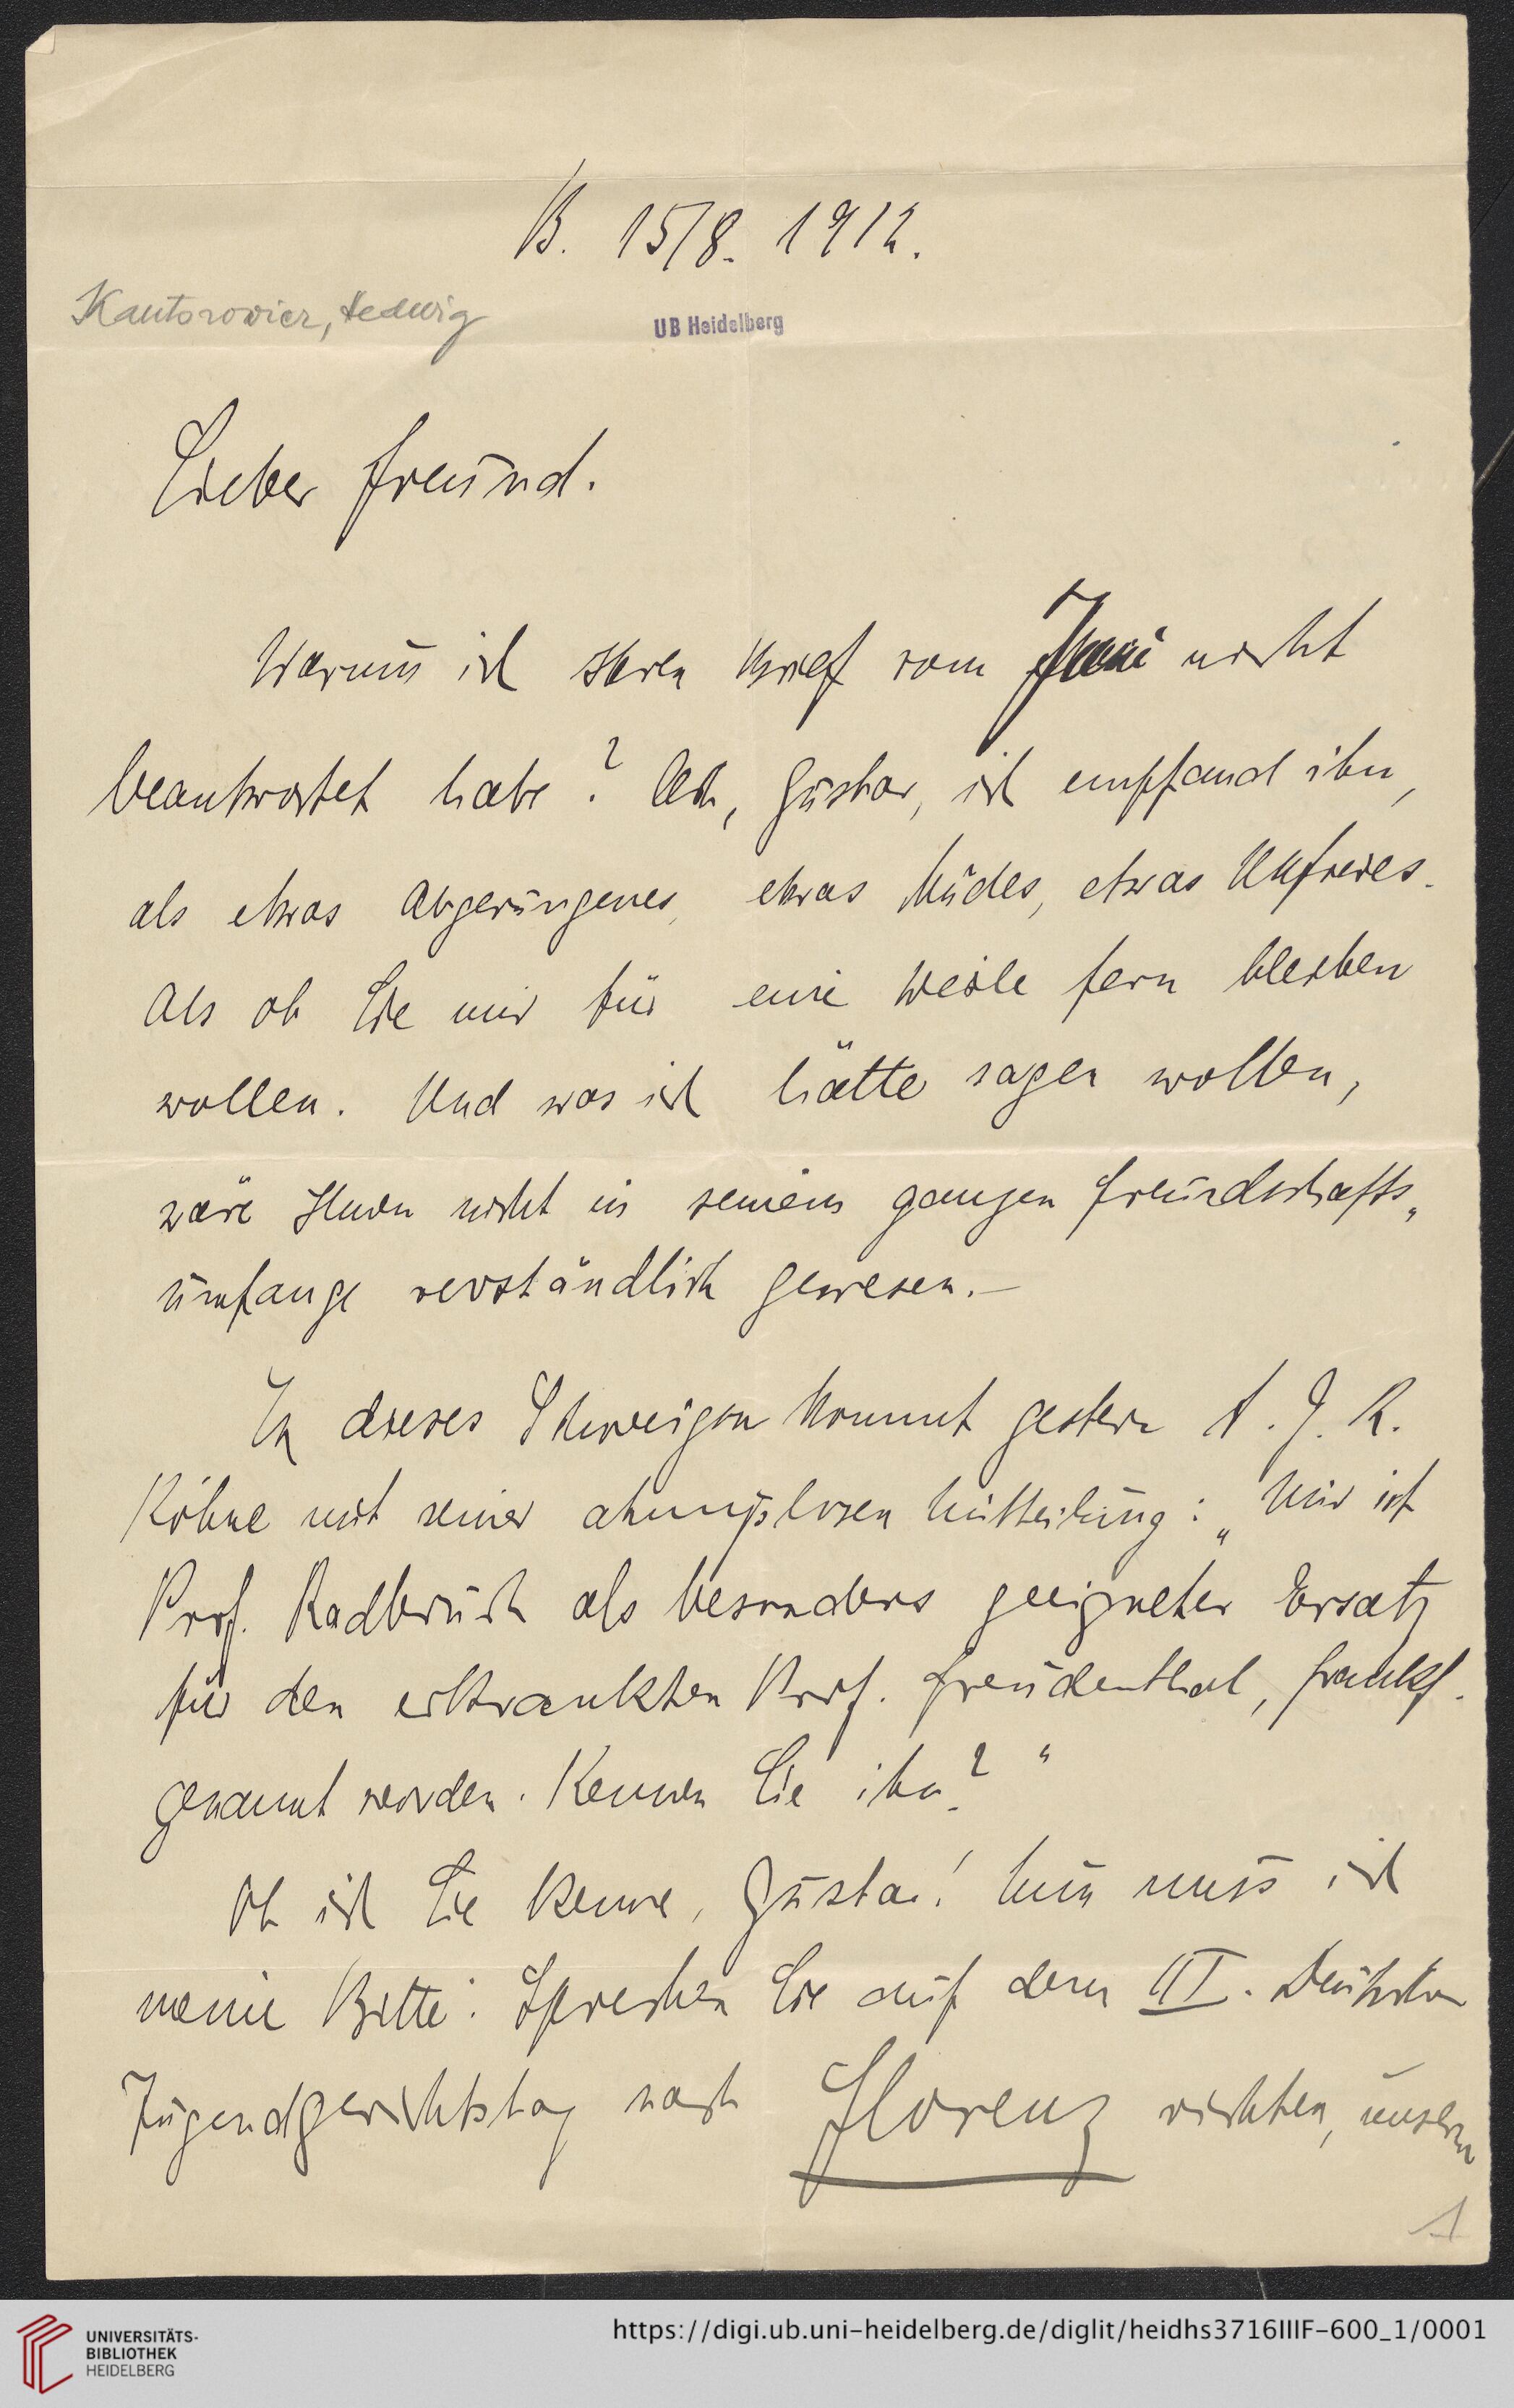 B. 15/8. 1912.
Kantorowicz, Hedwig
UB Heidelberg
Lieber Freund.
Warum ich Ihren Brief vom Juni nicht
beantwortet habe? Ach, Gustav, ich empfand ihn,
als etwas Abgerungenes, etwas Müdes, etwas Unfreies.
Als ob Sie mir für eine Weile fern bleiben
wollen. Und was ich hätte sagen wollen,
wäre Ihnen nicht in seinem ganzen Freundschafts„
umfange verständlich gewesen.—
In dieses Schweigen kommt gestern A. J. R.
Köhne mit seiner ahnungslosen Mitteilung: „Mir ist
Prof. Radbruch als besonders geeigneter Ersatz
für den erkrankten Prof. Freudenthal, Frankf.
genannt worden. Kennen Sie ihn?“
Ob ich Sie kenne, Gustav! Nun muss ich
meine Bitte: Sprechen Sie auf dem III. Deutschen
Jugendgerichtstag nach Florenz richten, unserm
1
UNIVERSITÄTS-
BIBLIOTHEK
HEIDELBERG
https://digi.ub.uni-heidelberg.de/diglit/heidhs3716IIIF-600_1/0001